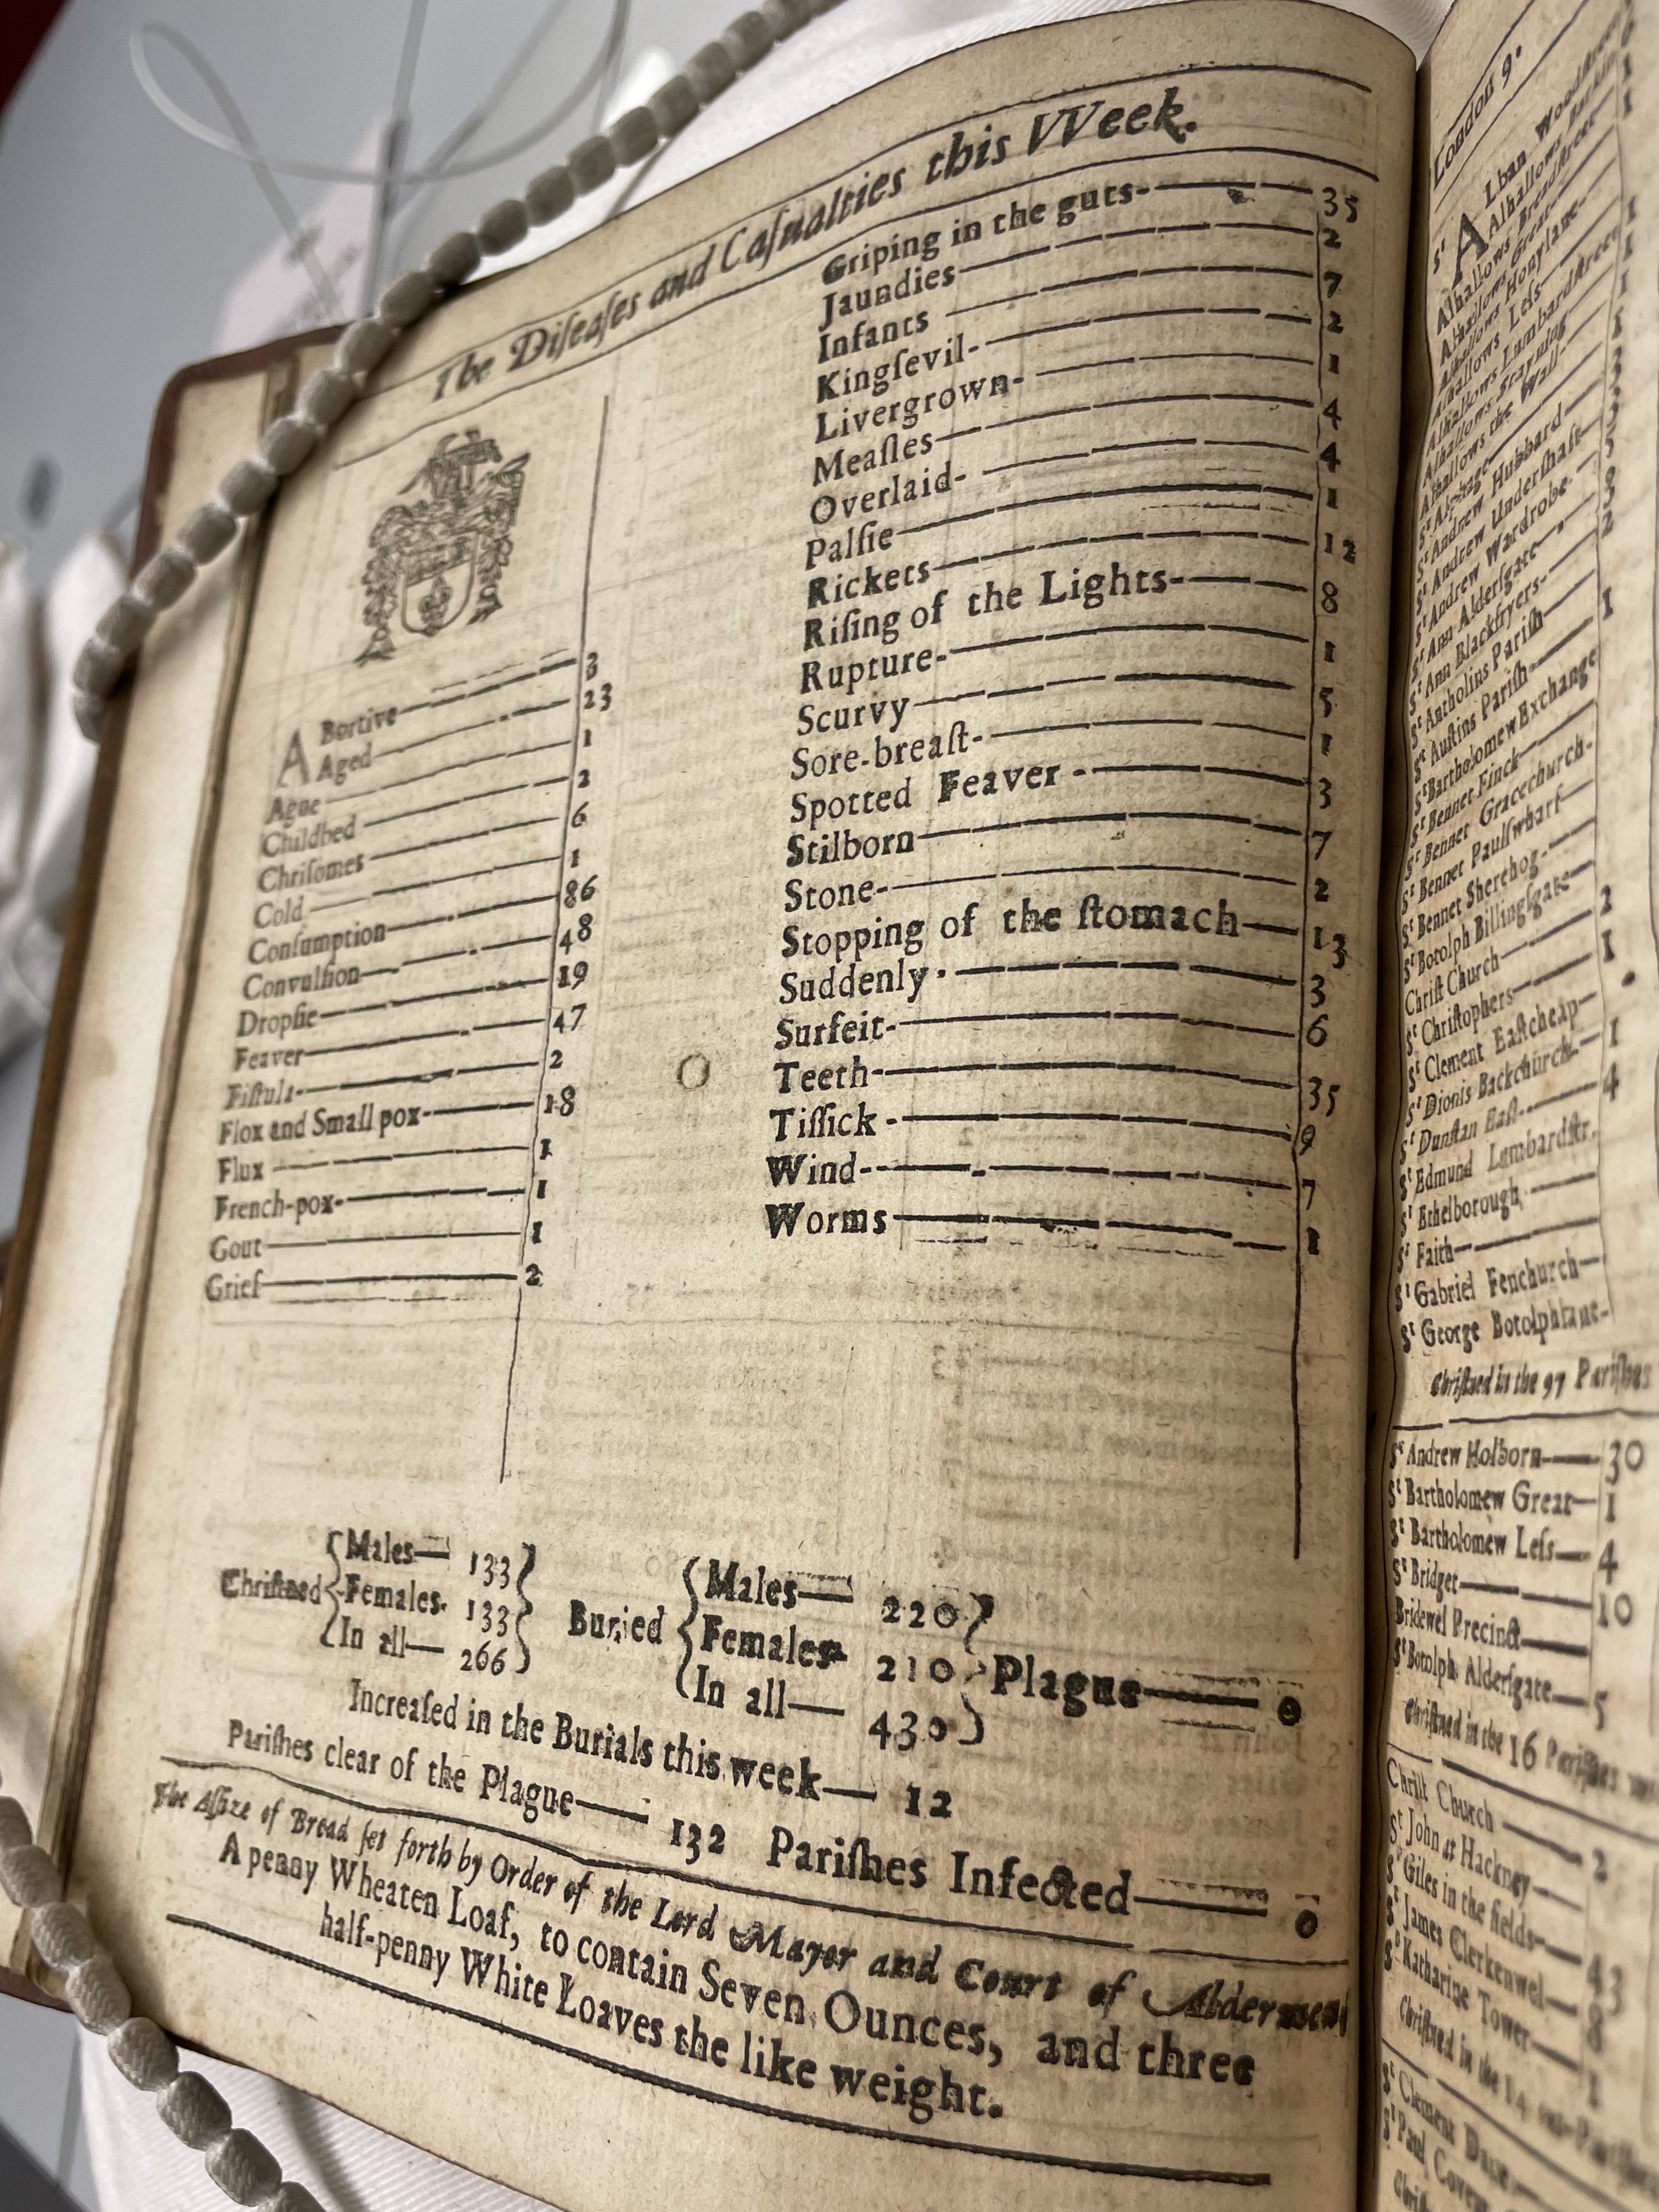 The Diſeaſes and Caſualties this VVeek.
ABortive 3
Aged 23
Ague 1
Childbed 2
Chriſomes 6
Cold 1
Conſumption 86
Convulſion 48
Dropſie 19
Feaver 47
Fiſtula 2
Flox and Small pox 18
Flux 1
French-pox 1
Gout 1
Grief 2
Griping in the guts 35
Jaundies 2
Infants 7
Kingſevil 2
Livergrown 1
Meaſles 4
Overlaid 4
Palſie 1
Rickets 12
Riſing of the Lights 8
Rupture 1
Scurvy 5
Sore-breaſt 1
Spotted Feaver 3
Stilborn 7
Stone 2
Stopping of the ſtomach 13
Suddenly 3
Surfeit 6
Teeth 35
Tiſſick 9
Wind 7
Worms 1
Chriſtned Males 133 Females 133 In all 266
Buried Males 220 Females 210 In all 430
Plague 0
Increaſed in the Burials this week 12
Pariſhes clear of the Plague 132 Pariſhes Infected 0
The Aſſize of Bread ſet forth by Order of the Lord Mayor and Court of Aldermen
A penny Wheaten Loaf, to contain Seven Ounces, and three
half-penny White Loaves the like weight.
London 9.
St ALban Woodſtreet
Alhallows Barking
Alhallows Breadſtreet
Alhallows Great
Alhallows Honylane
Alhallows Leſs
Alhallows Lumbardſtreet
Alhallows Stayning
Alhallows the Wall
St Alphage
St Andrew Hubbard
St Andrew Underſhaft
St Andrew Wardrobe
St Ann Alderſgate
St Ann Blackfryers
St Antholins Pariſh
St Auſtins Pariſh
St Bartholomew Exchange
St Bennet Finck
St Bennet Gracechurch
St Bennet Paulſwharf
St Bennet Sherehog
St Botolph Billingſgate
Chriſt Church 2
St Chriſtophers 1
St Clement Eaſtcheap
St Dionis Backchurch 1
St Dunſtan Eaſt 4
St Edmund Lumbardſtr.
St Ethelborough
St Faith
St Gabriel Fenchurch
St George Botolphlane
Chriſtned in the 97 Pariſhes
St Andrew Holborn 30
St Bartholomew Great 1
St Bartholomew Leſs 4
St Bridget 10
Bridewel Precinct
St Botolph Alderſgate 5
Chriſtned in the 16 Pariſhes
Chriſt Church 2
St John at Hackney
St Giles in the fields 43
St James Clerkenwel 8
St Katharine Tower 1
Chriſtned in the 14 out-Pariſhes
St Clement Dane
St Paul Coven